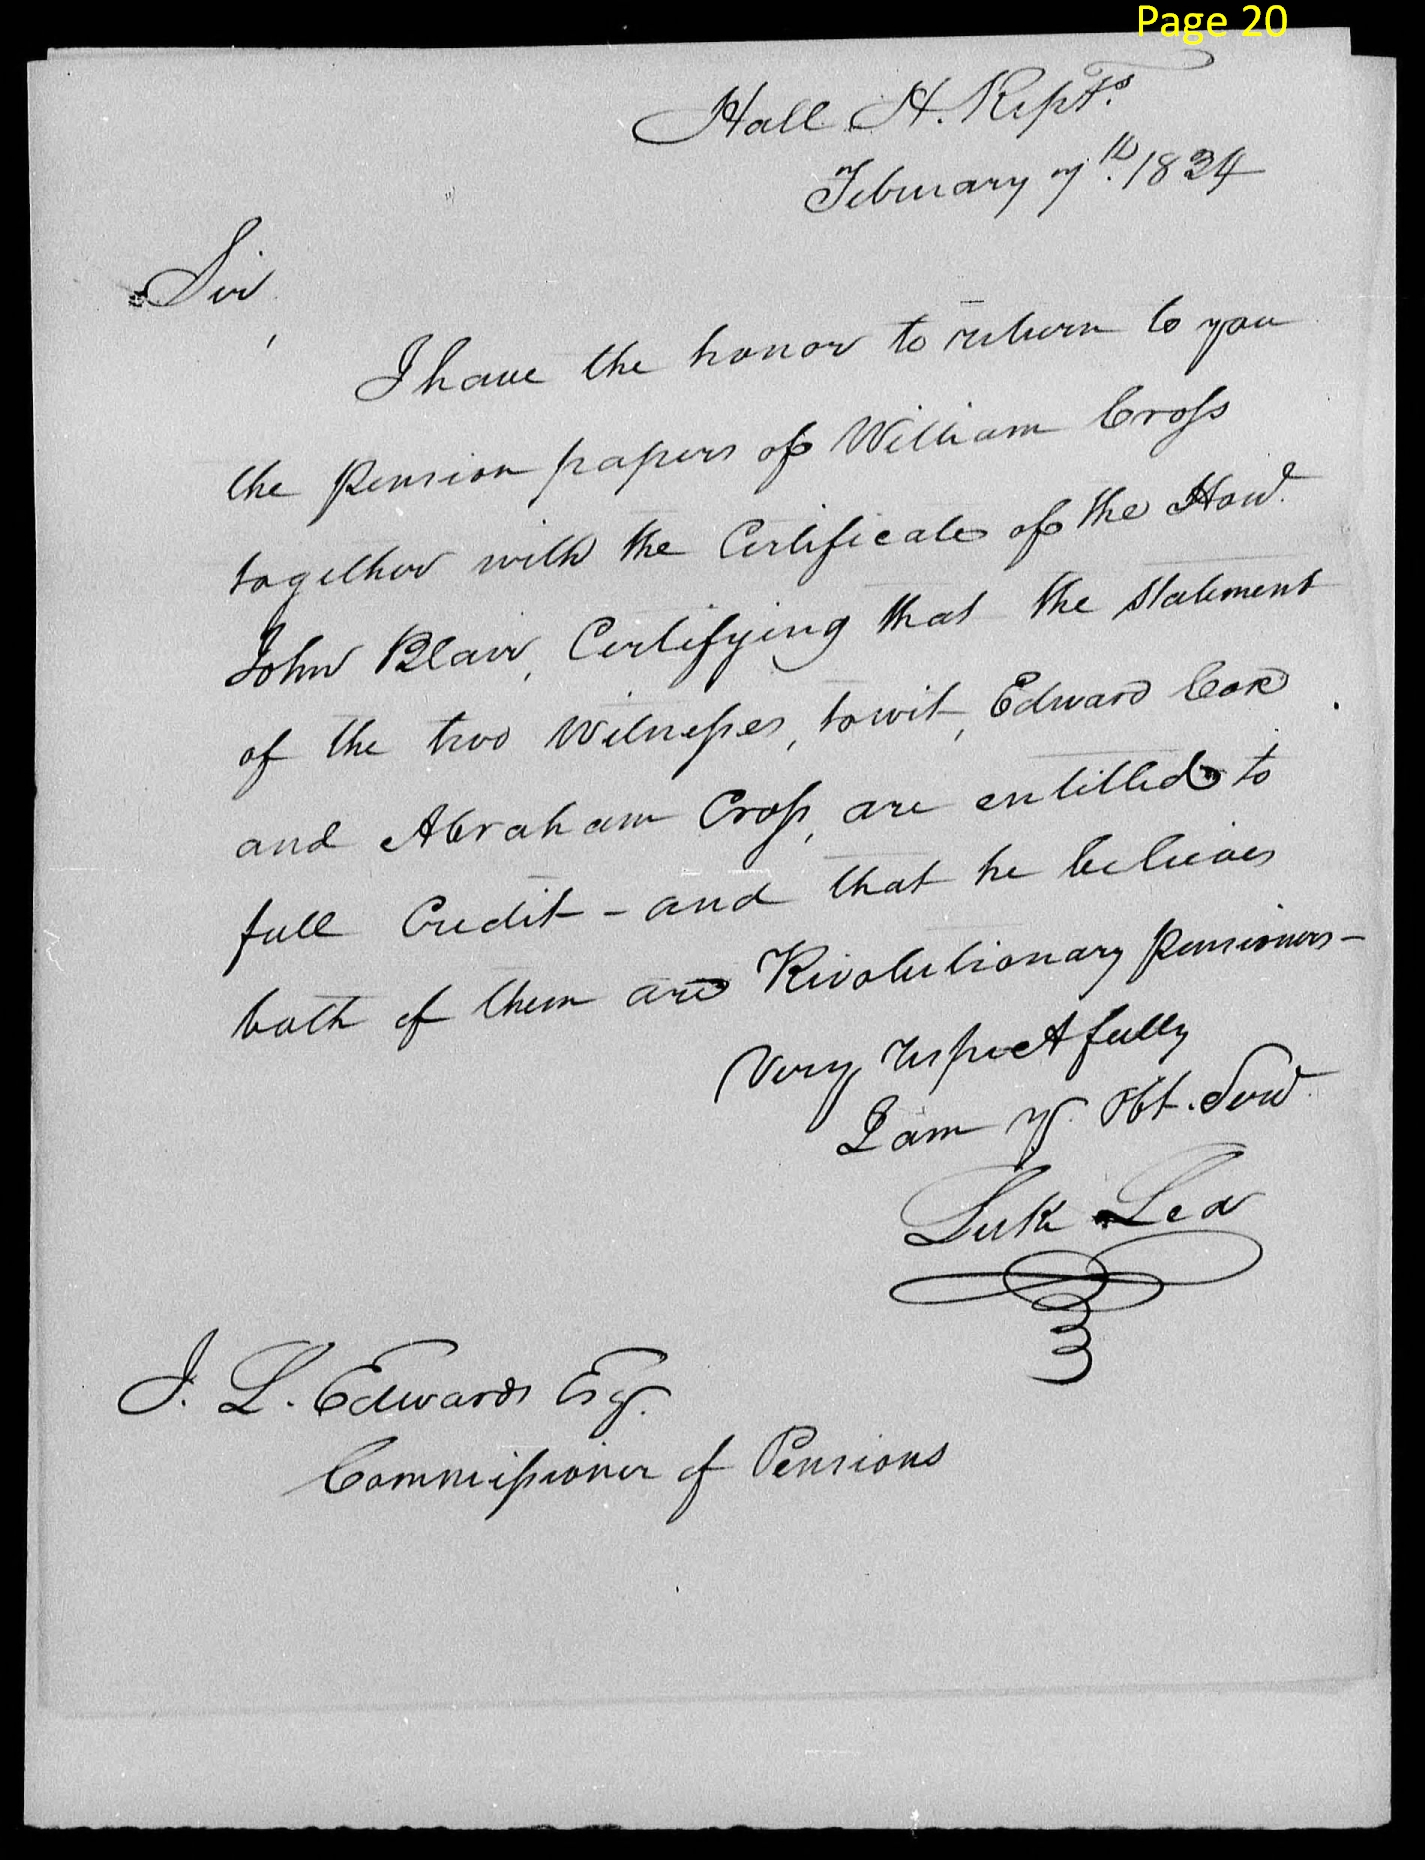 Page 20
Hall H. Repts.
February 7th. 1834
Sir,
I have the honor to return to you
the Pension papers of William Cross
together with the Certificate of the Hond.
John Blair, Certifying that the statement
of the two Witnesses, towit, Edward Cox
and Abraham Cross, are entitled to
full Credit - and that he believes
both of them are Revolutionary Pensioners -
Very respectfully
I am yr. Obt. Servt.
Luke Lea
J. L. Edwards Esqr.
Commissioner of Pensions